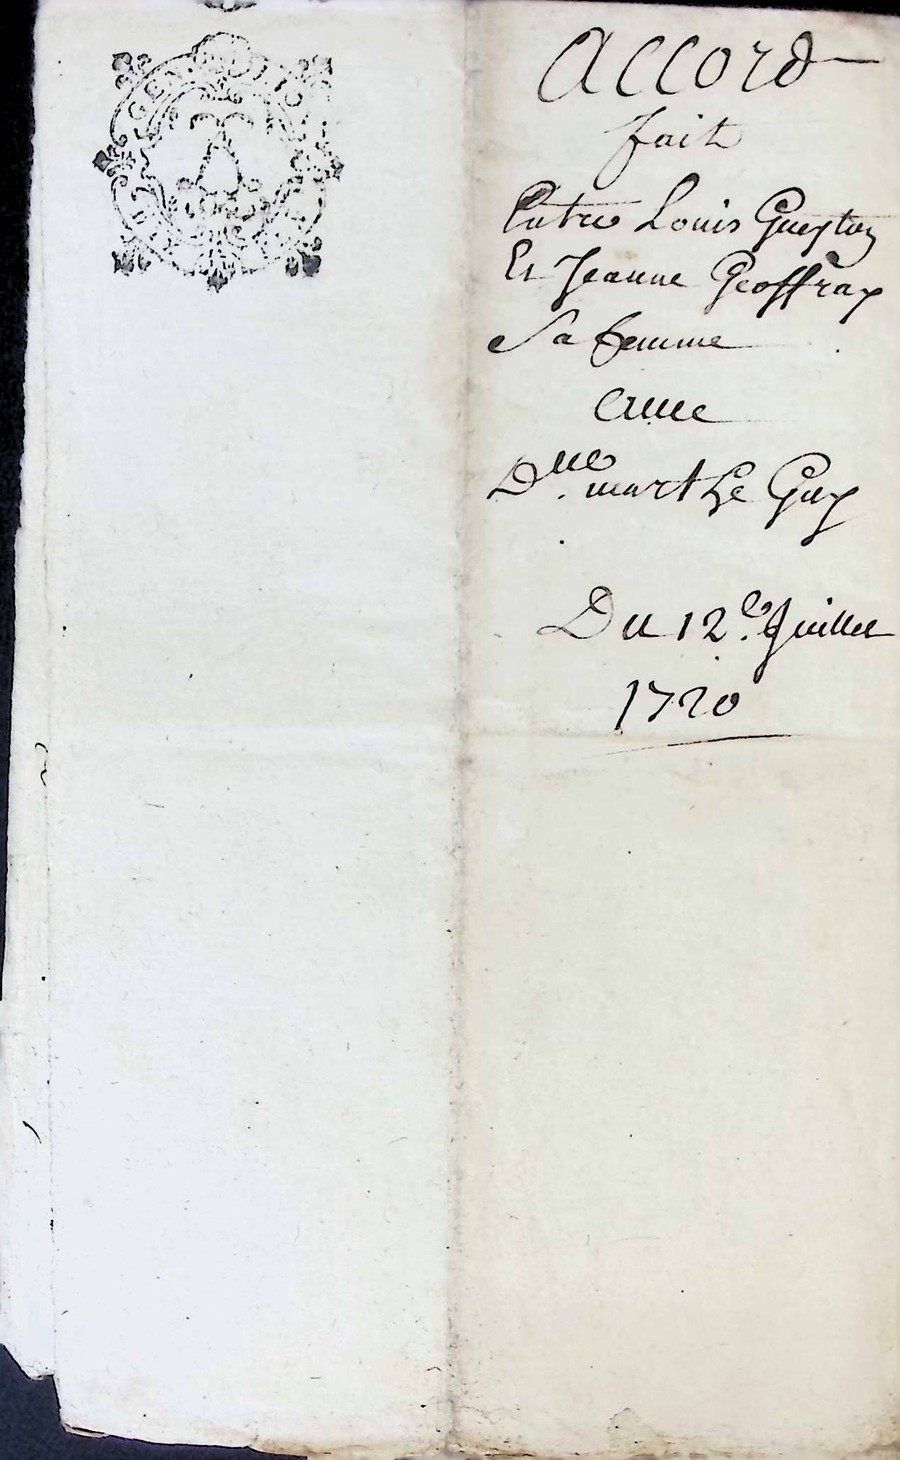 Accord
fait
Entre Louis Gueyton
Et Jeanne Geoffray
Sa femme
avec
Dlle. marthe Guy
Du 12e. Juillet
1720